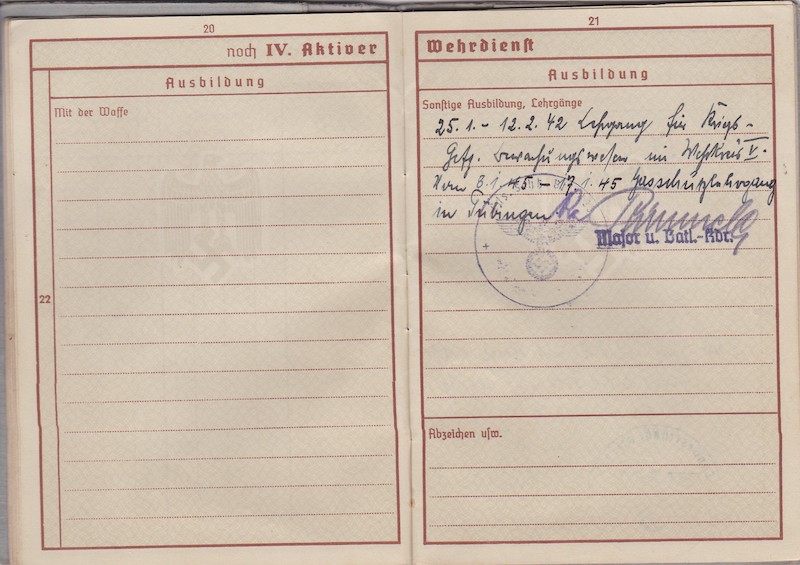 20
noch IV. Aktiver
Ausbildung
Mit der Waffe
22
21
Wehrdienst
Ausbildung
Sonstige Ausbildung, Lehrgänge
25.1. – 12.2.42 Lehrgang für Kriegs-
Gefg. bewachungswesen im Wehrkreis V.
Vom 8.1.45 – 17.1.45 Gasschutzlehrgang
in Tübingen
Major u. Batl.-Kdr.
Abzeichen usw.